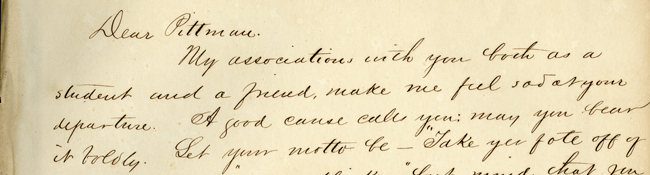 Dear Pittman.
My associations with you both as a
student and a friend, make me feel sad at your
departure. A good cause calls you; may you bear
it boldly. Let your motto be — "Take yer fote off of
"but mind, that you